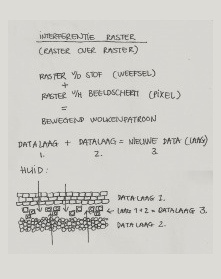 INTERFERENTIE RASTER
(RASTER OVER RASTER)
RASTER V/D STOF (WEEFSEL)
+
RASTER V/H BEELDSCHERM (PIXEL)
=
BEWEGEND WOLKENPATROON
DATALAAG + DATALAAG = NIEUWE DATA (LAAG)
1. 2. 3.
HUID:
DATALAAG 1.
← LAAG 1+2 = DATALAAG 3.
DATALAAG 2.